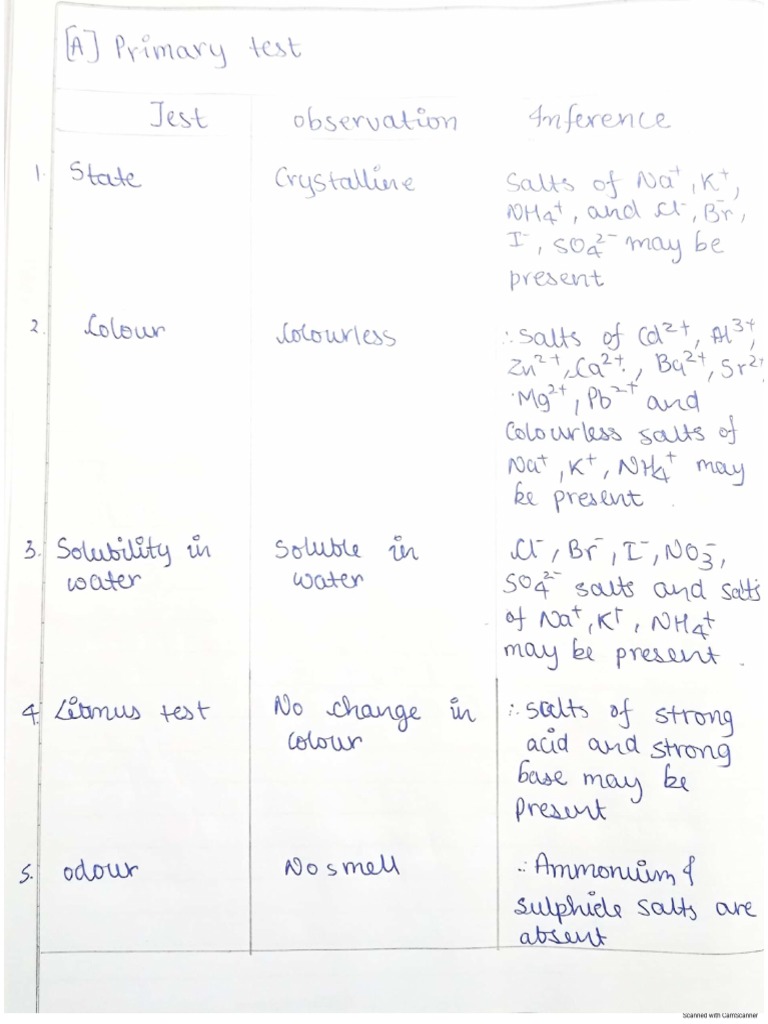 [A] Primary test
Test observation Inference
1. State Crystalline Salts of Na⁺, K⁺,
NH₄⁺, and Cl⁻, Br⁻,
I⁻, SO₄²⁻ may be
present
2. Colour Colourless ∴ salts of Cd²⁺, Al³⁺,
Zn²⁺, Ca²⁺, Ba²⁺, Sr²⁺
Mg²⁺, Pb²⁺ and
Colourless salts of
Na⁺, K⁺, NH₄⁺ may
be present
3. Solubility in Soluble in Cl⁻, Br⁻, I⁻, NO₃⁻,
water water SO₄²⁻ salts and salts
of Na⁺, K⁺, NH₄⁺
may be present.
4. Litmus test No change in ∴ salts of strong
colour acid and strong
base may be
present
5. odour No smell ∴ Ammonium &
sulphide salts are
absent
Scanned with CamScanner